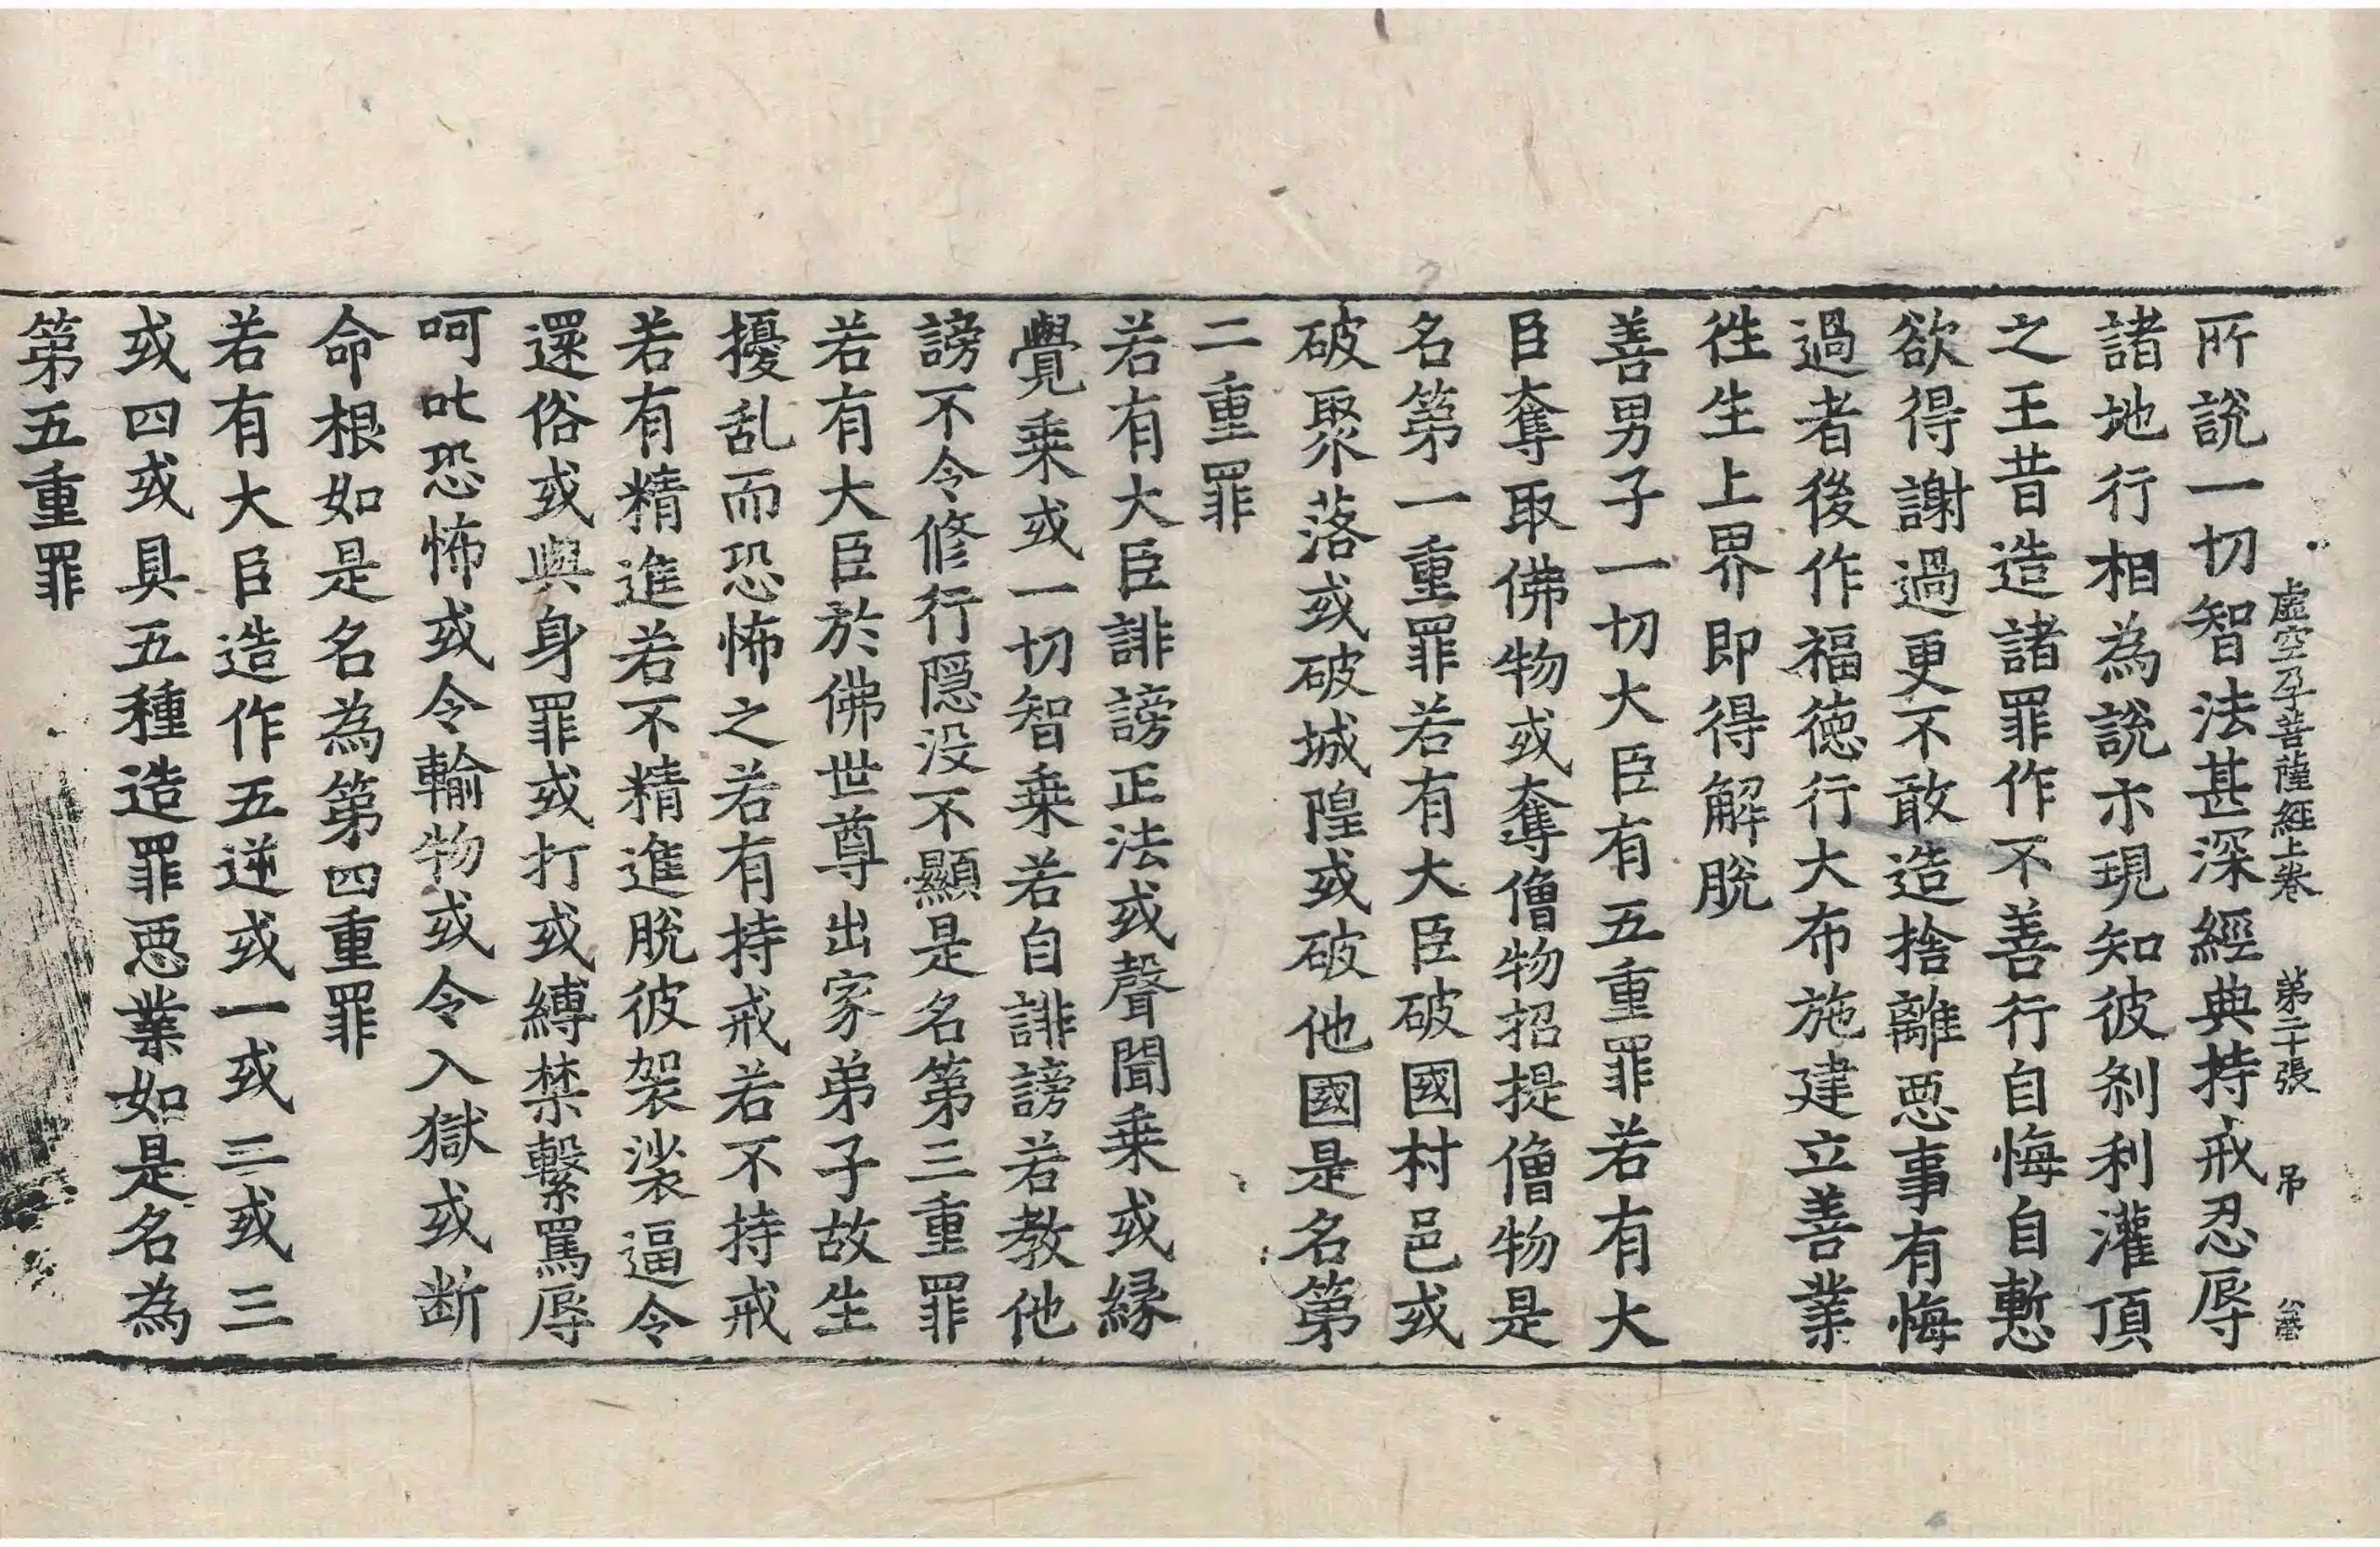 虛空孕菩薩經上卷　第二十張　吊　公瑩
所說一切智法甚深經典持戒忍辱
諸地行相為說示現知彼刹利灌頂
之王昔造諸罪作不善行自悔自慙
欲得謝過更不敢造捨離惡事有悔
過者後作福德行大布施建立善業
徃生上界即得解脫
善男子一切大臣有五重罪若有大
臣奪取佛物或奪僧物招提僧物是
名第一重罪若有大臣破國村邑或
破聚落或破城隍或破他國是名第
二重罪
若有大臣誹謗正法或聲聞乗或縁
覺乗或一切智乗若自誹謗若教他
謗不令修行隠没不顯是名第三重罪
若有大臣於佛世尊出家弟子故生
擾乱而恐怖之若有持戒若不持戒
若有精進若不精進脫彼袈裟逼令
還俗或與身罪或打或縛禁繫罵辱
呵叱恐怖或令輸物或令入獄或断
命根如是名為第四重罪
若有大臣造作五逆或一或二或三
或四或具五種造罪惡業如是名為
第五重罪